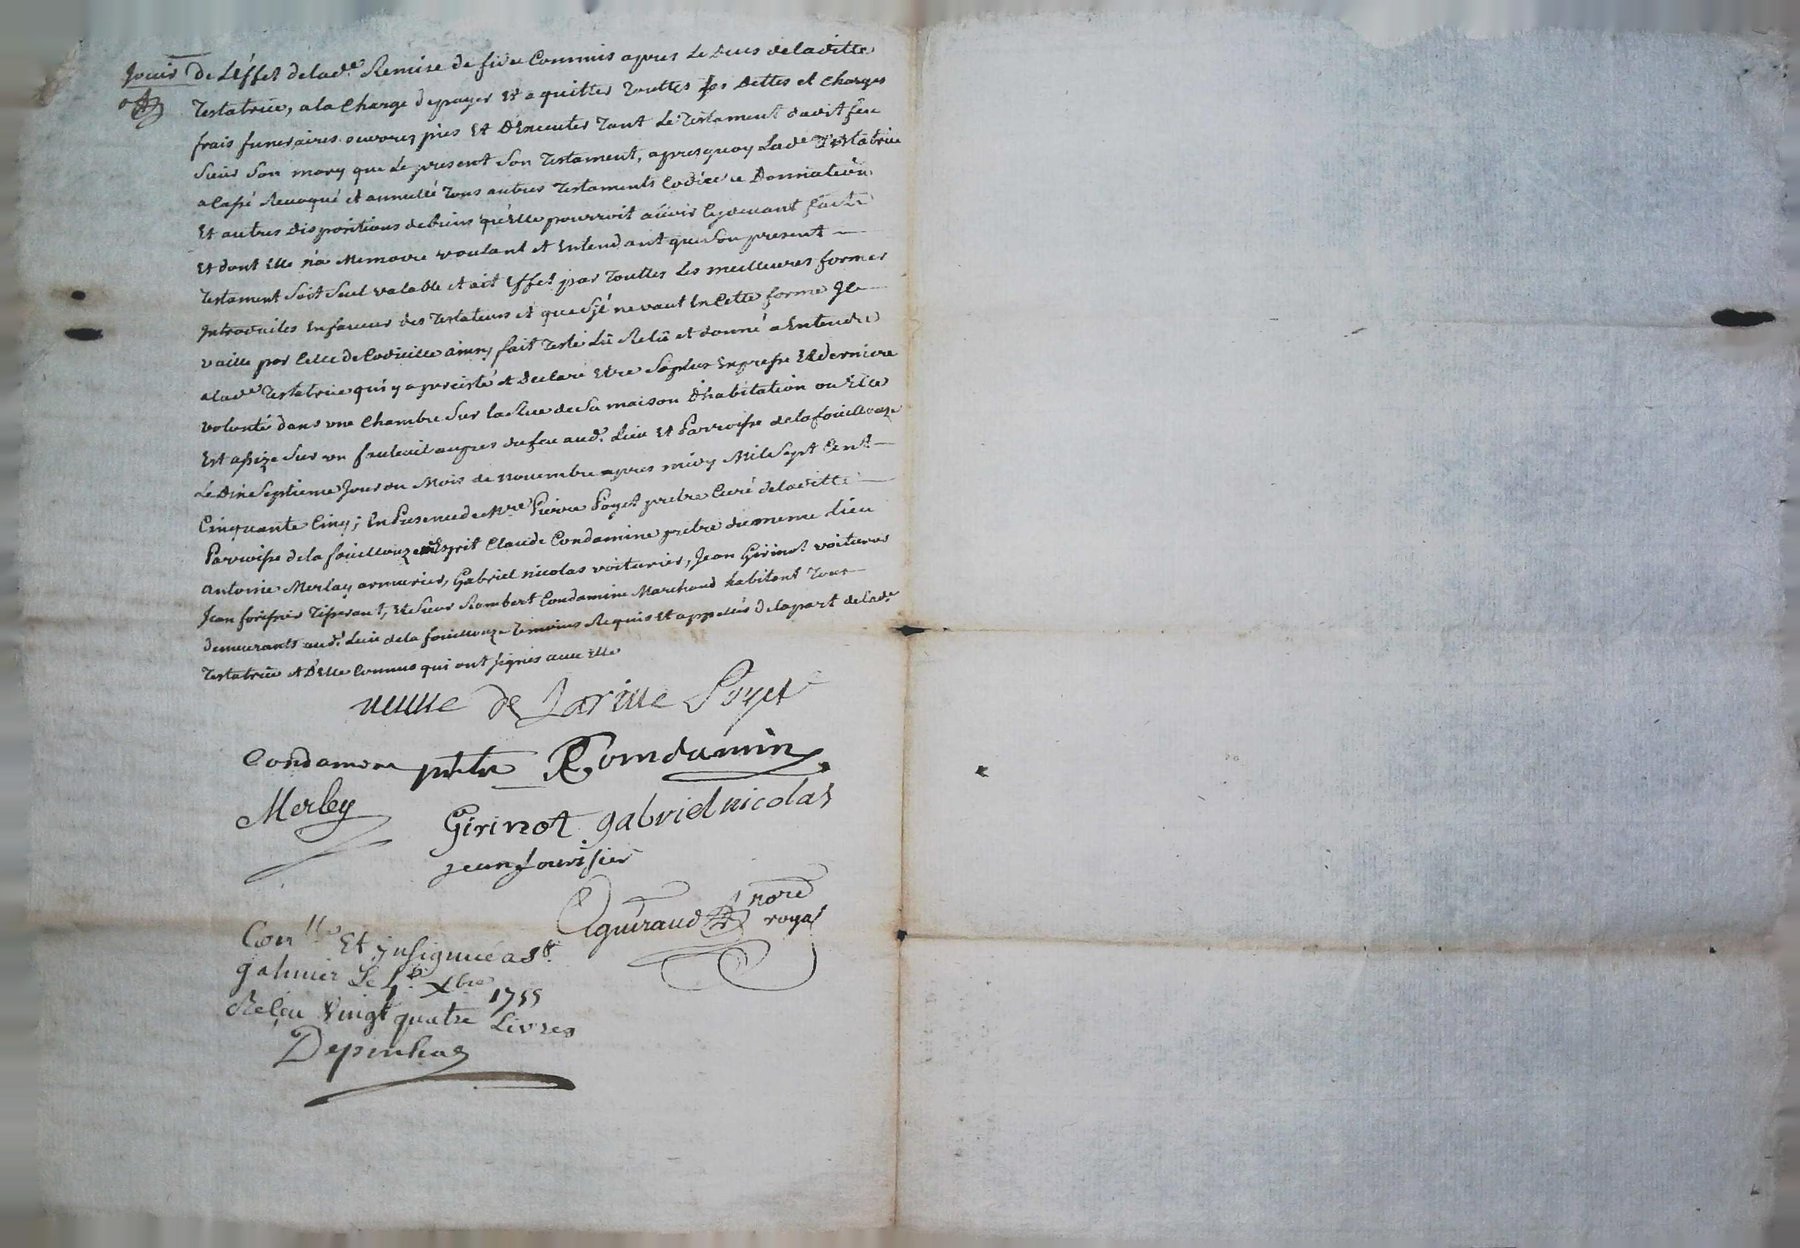 jouir De L'effet de lad.e Remise de fidei Commis apres Le Deces de laditte
Testatrice, a la Charge de payer Et a quitter Touttes ses Dettes et Charges
frais funeraires oeuvres pies Et D'Executer Tant Le Testament dudit feu
Sieur Son mary que Le present Son Testament, apres quoy Lad.e Testatrice
a Cassé Revoqué et annullé Tous autres Testaments Codicile Donnation
Et autres Dispositions de biens qu'Elle pourroit auoir Cy deuant faitte
Et dont Elle n'a Memoire voulant et Entendant que Son present
Testament Soit Seul valable et ait Effet par Touttes Les meilleures formes
Introduites En faueur des Testateurs et que S'il ne vaut En Cette forme Il
vaille par Celle de Codicille ainsy fait Testé Lû Relû et donné a Entendre
a lad.e Testatrice qui y a percisté et Declaré Etre Sa plus Expresse Et derniere
volonté dans une Chambre Sur la Rue de Sa maison D'habitation ou Elle
Est assize Sur un fauteuil aupres du feu aud.t Lieu Et Parroisse de la fouillouze
Le Dix Septieme Jour du Mois de nouembre apres midy Mil Sept Cent
Cinquante Cinq; En Presence de M.re Pierre Poyet prebre Curé de laditte
Parroisse de la fouillouze Esprit Claude Condamine prebre du meme lieu
Antoine Merlay armurier, Gabriel nicolas voiturier, Jean Girinot voiturier
Jean Tisserant, et Sieur Rambert Condamine Marchand habitant Tous
demeurants aud.t Lieu de la fouillouze Temoins Requis Et appellés de la part de lad.e
Testatrice et D'Elle Connus qui ont signés auec Elle
veuue de Lariue Poyet
Condamine prebtre R Comdamin
Merley
Girinot gabriel nicolas
jean fourisier
Aguiraud no.re
royal
Con.lle Et insignué a S.t
galmier Le 4.e Xbre 1755
Reçu Vingt quatre Livres
Depinhac